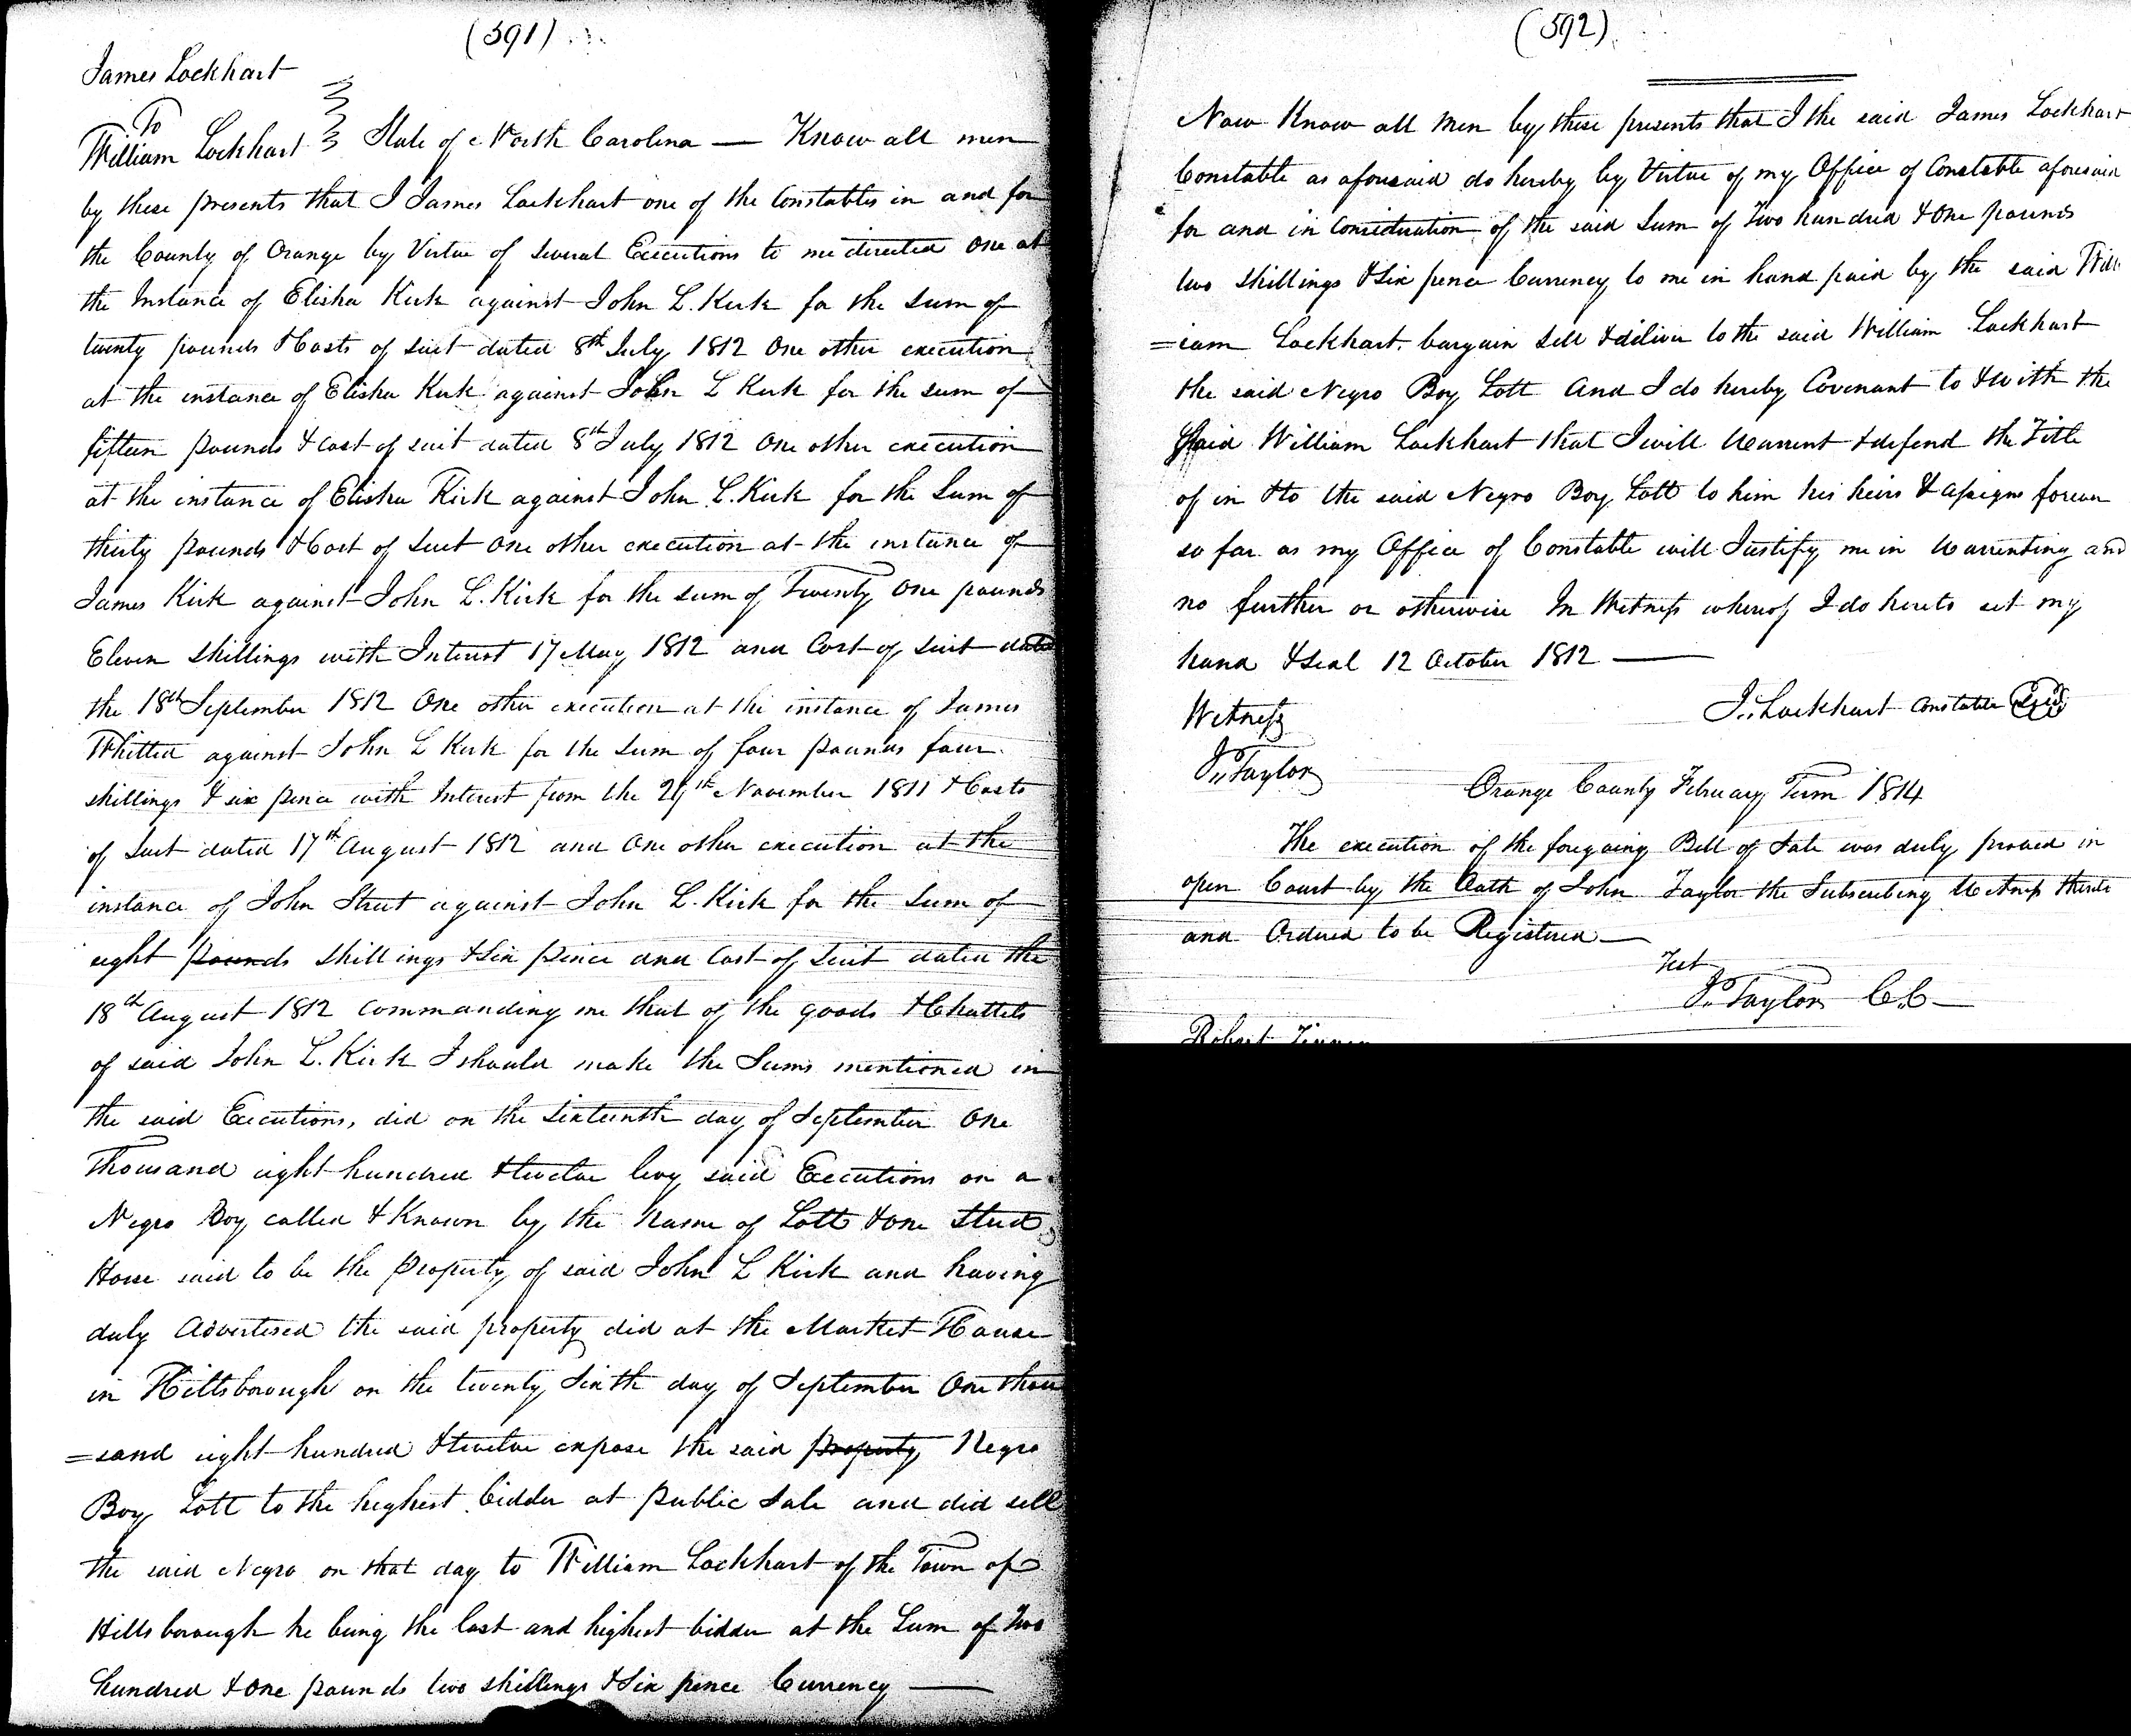 (591)
James Lockhart
To
William Lockhart State of North Carolina — Know all men
by these presents that I James Lockhart one of the Constables in and for
the County of Orange by Virtue of several Executions to me directed One at
the Instance of Elisha Kirk against John L. Kirk for the sum of
twenty pounds & Costs of suit dated 8th July 1812 One other execution
at the instance of Elisha Kirk against John L Kirk for the sum of
fifteen pounds & Cost of suit dated 8th July 1812 One other execution
at the instance of Elisha Kirk against John L. Kirk for the Sum of
thirty pounds & Cost of Suit One other execution at the instance of
James Kirk against John L. Kirk for the sum of Twenty One pounds
Eleven shillings with Interest 17 May 1812 and Cost of Suit dated
the 18th September 1812 One other execution at the instance of James
Whitted against John L Kirk for the Sum of four pounds four
shillings & six pence with Interest from the 29th November 1811 & Costs
of Suit dated 17th August 1812 and One other execution at the
instance of John Street against John L. Kirk for the Sum of
eight pounds shillings & Six pence and Cost of Suit dated the
18th August 1812 Commanding me that of the goods & Chattels
of said John L. Kirk I should make the Sums mentioned in
the said Executions, did on the Sixteenth day of September One
Thousand eight hundred & twelve levy said Executions on a
Negro Boy called & Known by the Name of Lott & one Stud
Horse said to be the Property of said John L Kirk and having
duly Advertised the said property did at the Market House
in Hillsborough on the twenty Sixth day of September One thou
=sand eight hundred & twelve expose the said Property Negro
Boy Lott to the highest bidder at Public Sale and did sell
the said Negro on that day to William Lockhart of the Town of
Hillsborough he being the last and highest bidder at the Sum of Two
hundred & One pounds two shillings & Six pence Currency —
(592)
Now Know all Men by these presents that I the said James Lockhart
Constable as aforesaid do hereby by Virtue of my Office of Constable aforesaid
for and in Consideration of the said Sum of Two hundred & One pounds
two shillings & Six pence Currency to me in hand paid by the said Will
=iam Lockhart, bargain Sell & deliver to the said William Lockhart
the said Negro Boy Lott And I do hereby Covenant to & with the
Said William Lockhart that I will Warrent & defend the Title
of in & to the said Negro Boy Lott to him his heirs & assigns forever
so far as my Office of Constable will Justify me in Warrenting and
no further or otherwise In Witness whereof I do hereto set my
hand & Seal 12 October 1812 —
J. Lockhart Constable Seal
Witness
Jo Taylor
Orange County February Term 1814
The execution of the foregoing Bill of Sale was duly proved in
open Court by the Oath of John Taylor the Subscribing Witness thereto
and Ordered to be Registered —
Test
Jo Taylor C.C —
Robert